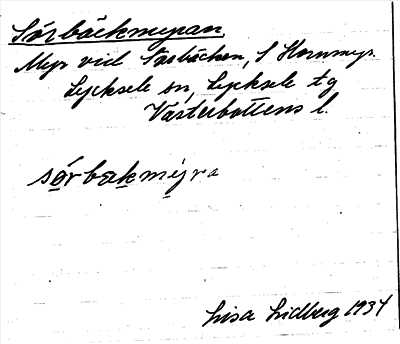 Sörbäckmyran
Myr vid Sörbäcken, S Hornmyr.
Lycksele sn, Lycksele tg
Västerbottens l.
sörbækmýra
Lisa Lidberg 1934